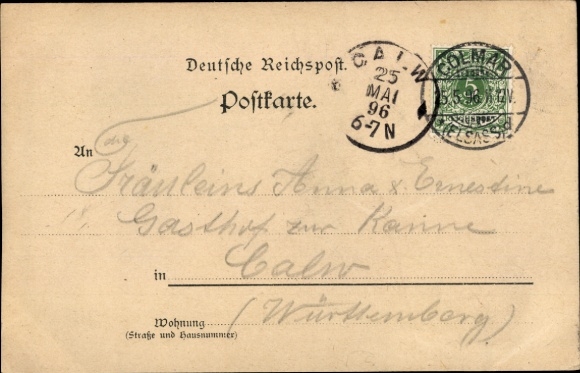 Deutsche Reichspost.
Postkarte.
CALW
25
MAI
96
6-7 N
COLMAR
5
(ELSASS)
An
die
Fräuleins Anna & Ernestine
Gasthof zur Kanne
in Calw
(Württemberg)
Wohnung
(Straße und Hausnummer)